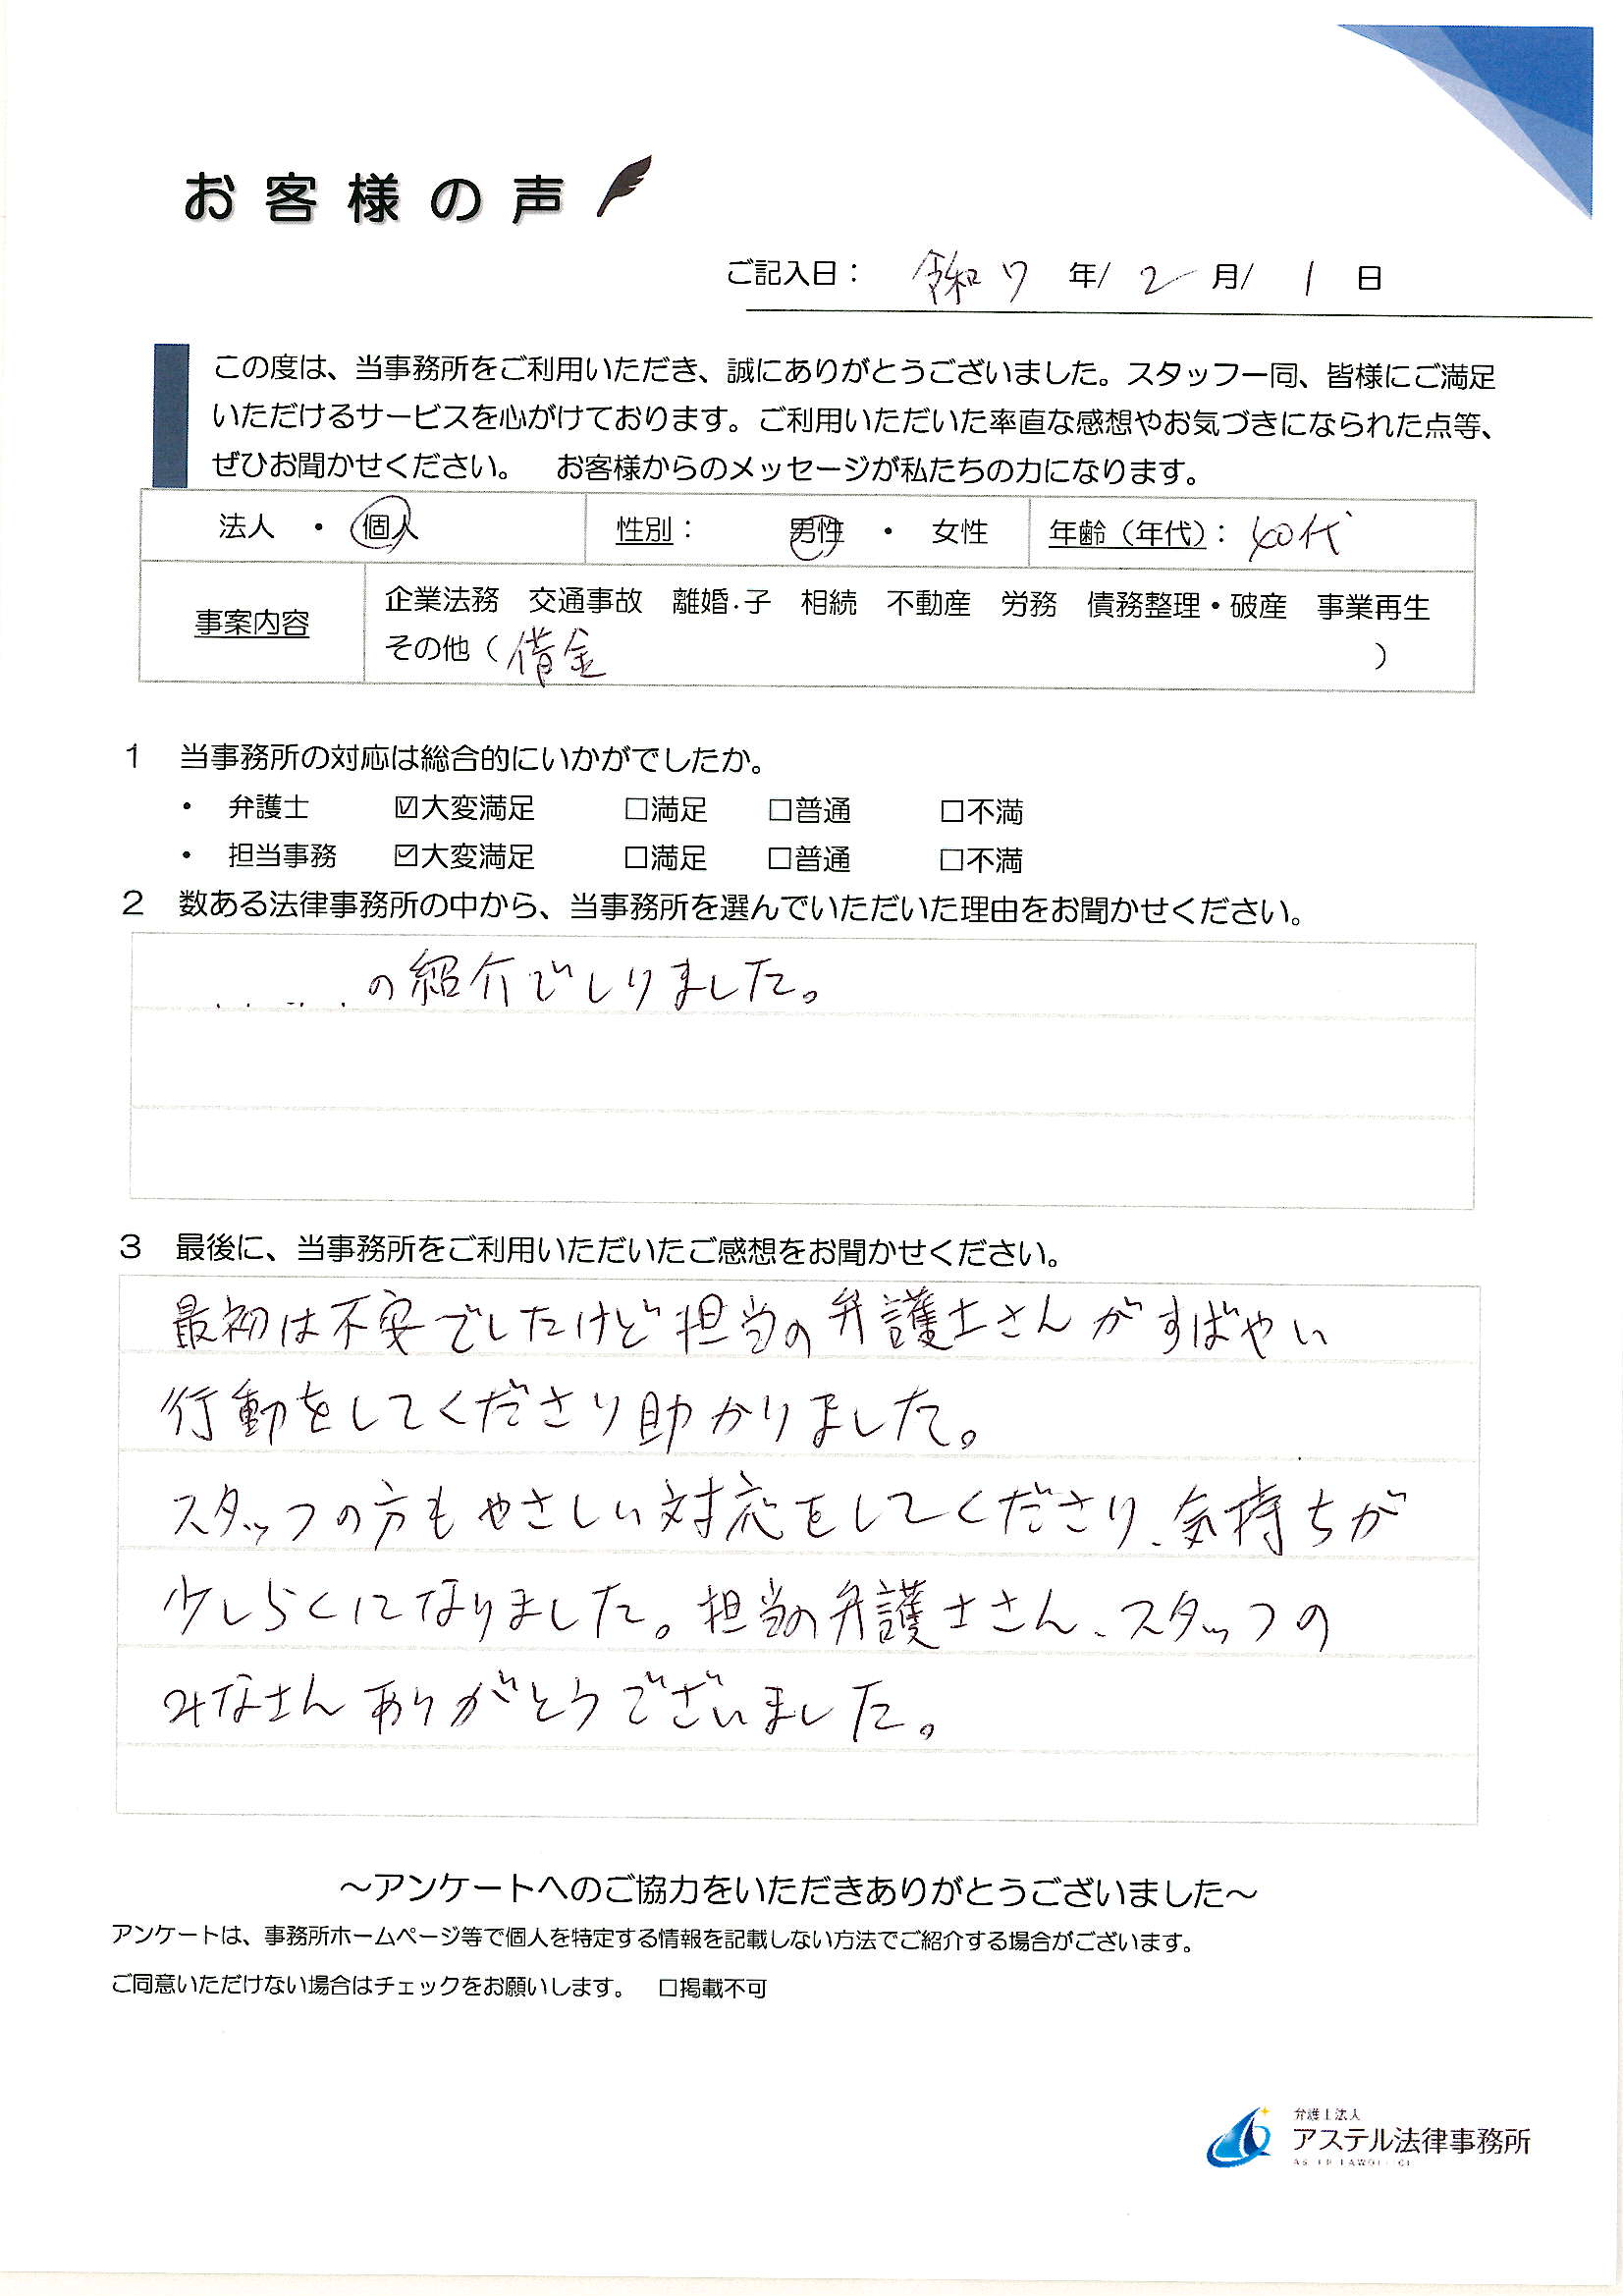 お客様の声
ご記入日： 令和7 年/ 2 月/ 1 日
この度は、当事務所をご利用いただき、誠にありがとうございました。スタッフ一同、皆様にご満足
いただけるサービスを心がけております。ご利用いただいた率直な感想やお気づきになられた点等、
ぜひお聞かせください。 お客様からのメッセージが私たちの力になります。
法人 ・ 個人 性別： 男性 ・ 女性 年齢（年代）： 40代
事案内容
企業法務 交通事故 離婚・子 相続 不動産 労務 債務整理・破産 事業再生
その他（ 借金 ）
1 当事務所の対応は総合的にいかがでしたか。
・ 弁護士 ☑大変満足 □満足 □普通 □不満
・ 担当事務 ☑大変満足 □満足 □普通 □不満
2 数ある法律事務所の中から、当事務所を選んでいただいた理由をお聞かせください。
の紹介でしりました。
3 最後に、当事務所をご利用いただいたご感想をお聞かせください。
最初は不安でしたけど担当の弁護士さんがすばやい
行動をしてくださり助かりました。
スタッフの方もやさしい対応をしてくださり、気持ちが
少しらくになりました。担当の弁護士さん、スタッフの
みなさんありがとうございました。
～アンケートへのご協力をいただきありがとうございました～
アンケートは、事務所ホームページ等で個人を特定する情報を記載しない方法でご紹介する場合がございます。
ご同意いただけない場合はチェックをお願いします。 □掲載不可
弁護士法人
アステル法律事務所